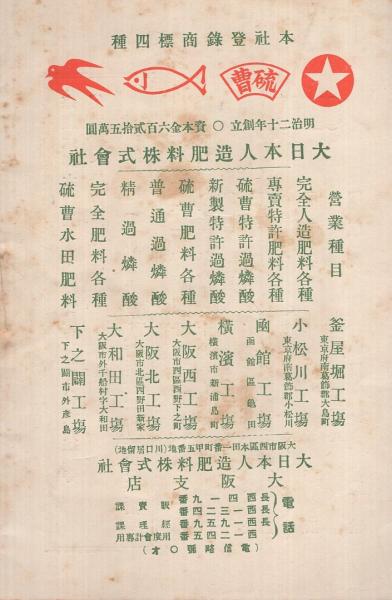 本社登錄商標四種
硫曹
明治二十年創立〇資本金六百貳拾五萬圓
大日本人造肥料株式會社
營業種目
完全人造肥料各種
專賣特許肥料各種
硫曹特許過燐酸
新製特許過燐酸
硫曹肥料各種
普通過燐酸
精過燐酸
完全肥料各種
硫曹水田肥料
釜屋堀工塲
東京府南葛飾郡大島町
小松川工塲
東京府南葛飾郡小松川
函館工塲
函館區龜田
橫濱工塲
橫濱市新浦島町
大阪西工塲
大阪市西區西野下之町
大阪北工塲
大阪市北區西野田新家
大和田工塲
大阪市外千船村字大和田
下之關工塲
下之關市外彥島
大阪市西區本田一番町甲五番地(川口居留地)
大日本人造肥料株式會社
大阪支店
電話
長西四一九番 販賣課
長西一二四番
西一九五番 經理課
西二四九番 用度會計專用
(電信略號〇オ)